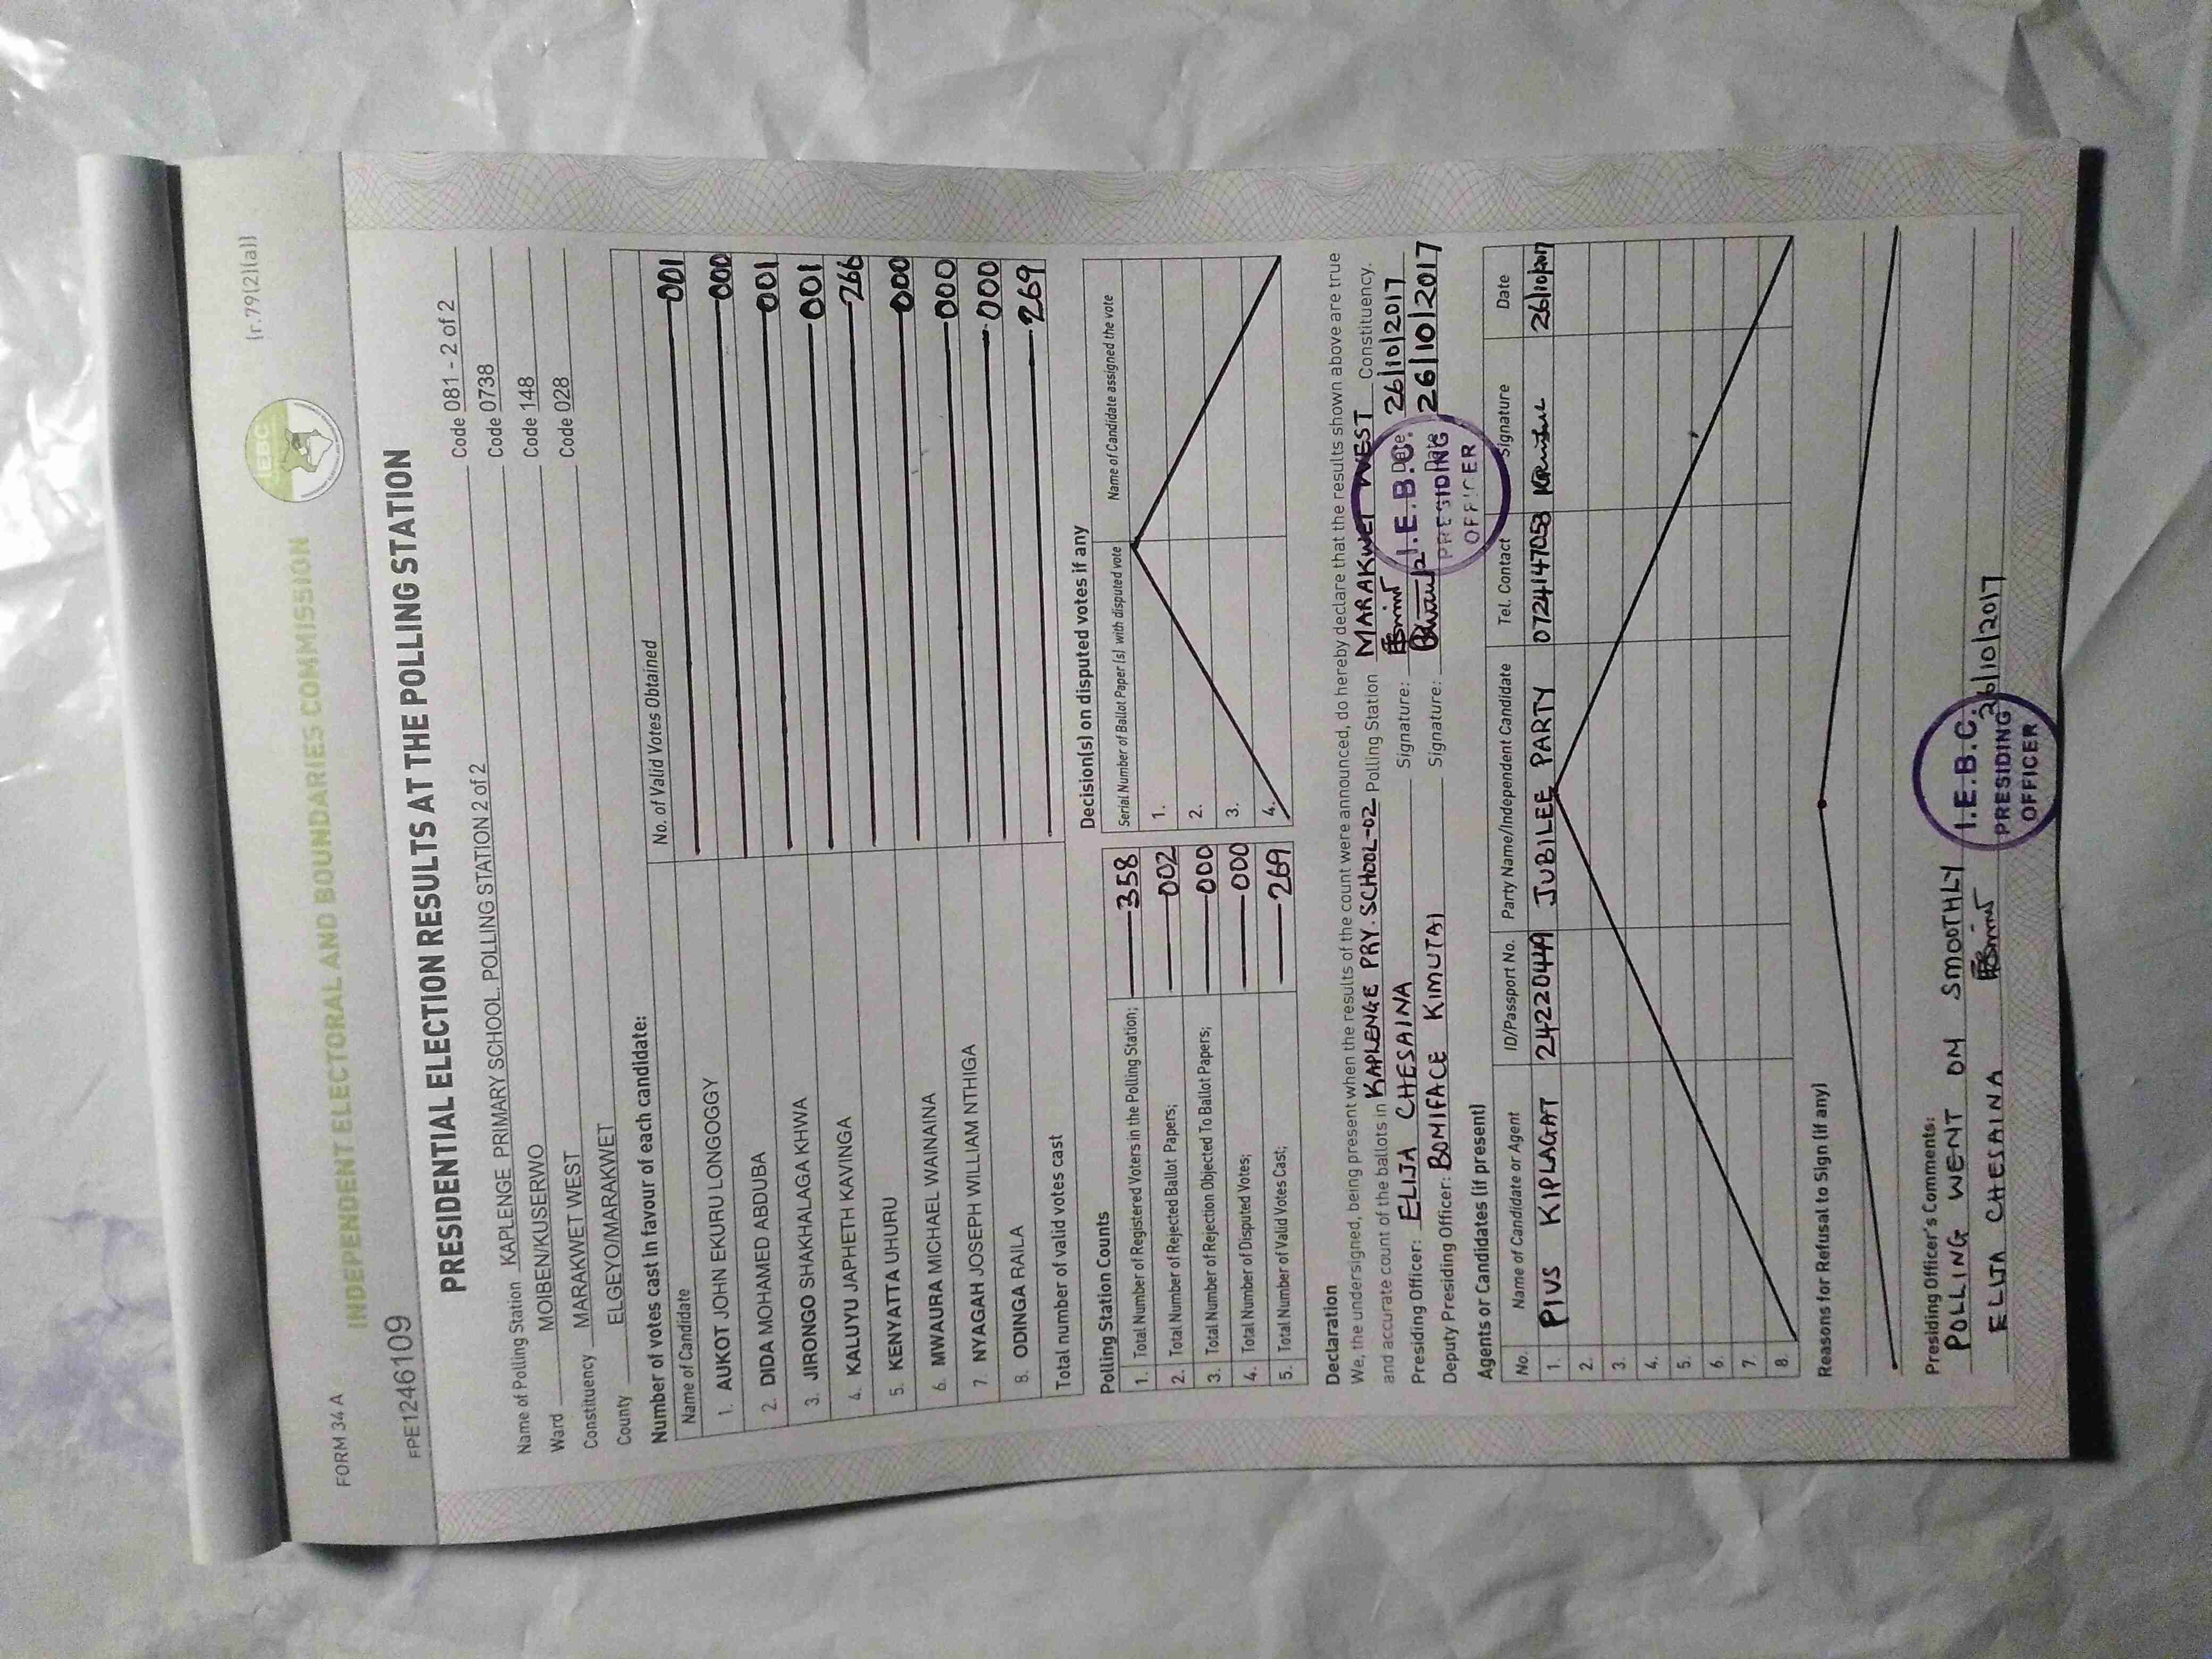 FORM 34 A
[r.79(2)(a)]
INDEPENDENT ELECTORAL AND BOUNDARIES COMMISSION
IEBC
FPE1246109
PRESIDENTIAL ELECTION RESULTS AT THE POLLING STATION
Name of Polling Station KAPLENGE PRIMARY SCHOOL. POLLING STATION 2 of 2 Code 081 - 2 of 2
Ward MOIBEN/KUSERWO Code 0738
Constituency MARAKWET WEST Code 148
County ELGEYO/MARAKWET Code 028
Number of votes cast in favour of each candidate:
Name of Candidate No. of Valid Votes Obtained
1. AUKOT JOHN EKURU LONGOGGY 001
2. DIDA MOHAMED ABDUBA 000
3. JIRONGO SHAKHALAGA KHWA 001
4. KALUYU JAPHETH KAVINGA 001
5. KENYATTA UHURU 266
6. MWAURA MICHAEL WAINAINA 000
7. NYAGAH JOSEPH WILLIAM NTHIGA 000
8. ODINGA RAILA 000
Total number of valid votes cast 269
Polling Station Counts
1. Total Number of Registered Voters in the Polling Station; 358
2. Total Number of Rejected Ballot Papers; 002
3. Total Number of Rejection Objected To Ballot Papers; 000
4. Total Number of Disputed Votes; 000
5. Total Number of Valid Votes Cast; 269
Decision(s) on disputed votes if any
Serial Number of Ballot Paper(s) with disputed vote Name of Candidate assigned the vote
1.
2.
3.
4.
Declaration
We, the undersigned, being present when the results of the count were announced, do hereby declare that the results shown above are true
and accurate count of the ballots in KAPLENGE PRY. SCHOOL-02 Polling Station MARAKWET WEST Constituency.
Presiding Officer: ELIJA CHESAINA Signature: Date: 26/10/2017
Deputy Presiding Officer: BONIFACE KIMUTAI Signature: Date 26/10/2017
I.E.B.C.
PRESIDING
OFFICER
Agents or Candidates (if present)
No. Name of Candidate or Agent ID/Passport No. Party Name/Independent Candidate Tel. Contact Signature Date
1. PIUS KIPLAGAT 24220449 JUBILEE PARTY 0724147053 26/10/2017
2.
3.
4.
5.
6.
7.
8.
Reasons for Refusal to Sign (if any)
Presiding Officer's Comments:
POLLING WENT ON SMOOTHLY
ELIJA CHESAINA 26/10/2017
I.E.B.C.
PRESIDING
OFFICER